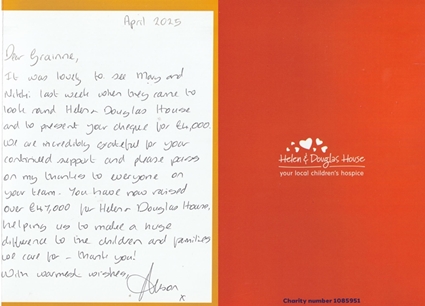 April 2025
Dear Grainne,
It was lovely to see Mary and
Nikki last week when they came to
look round Helen & Douglas House
and to present your cheque for £4,000.
We are incredibly grateful for your
continued support and please pass
on my thanks to everyone on
your team. You have now raised
over £47,000 for Helen & Douglas House,
helping us to make a huge
difference to the children and families
we care for - thank you!
With warmest wishes,
Alison
x
Helen & Douglas House
your local children's hospice
Charity number 1085951